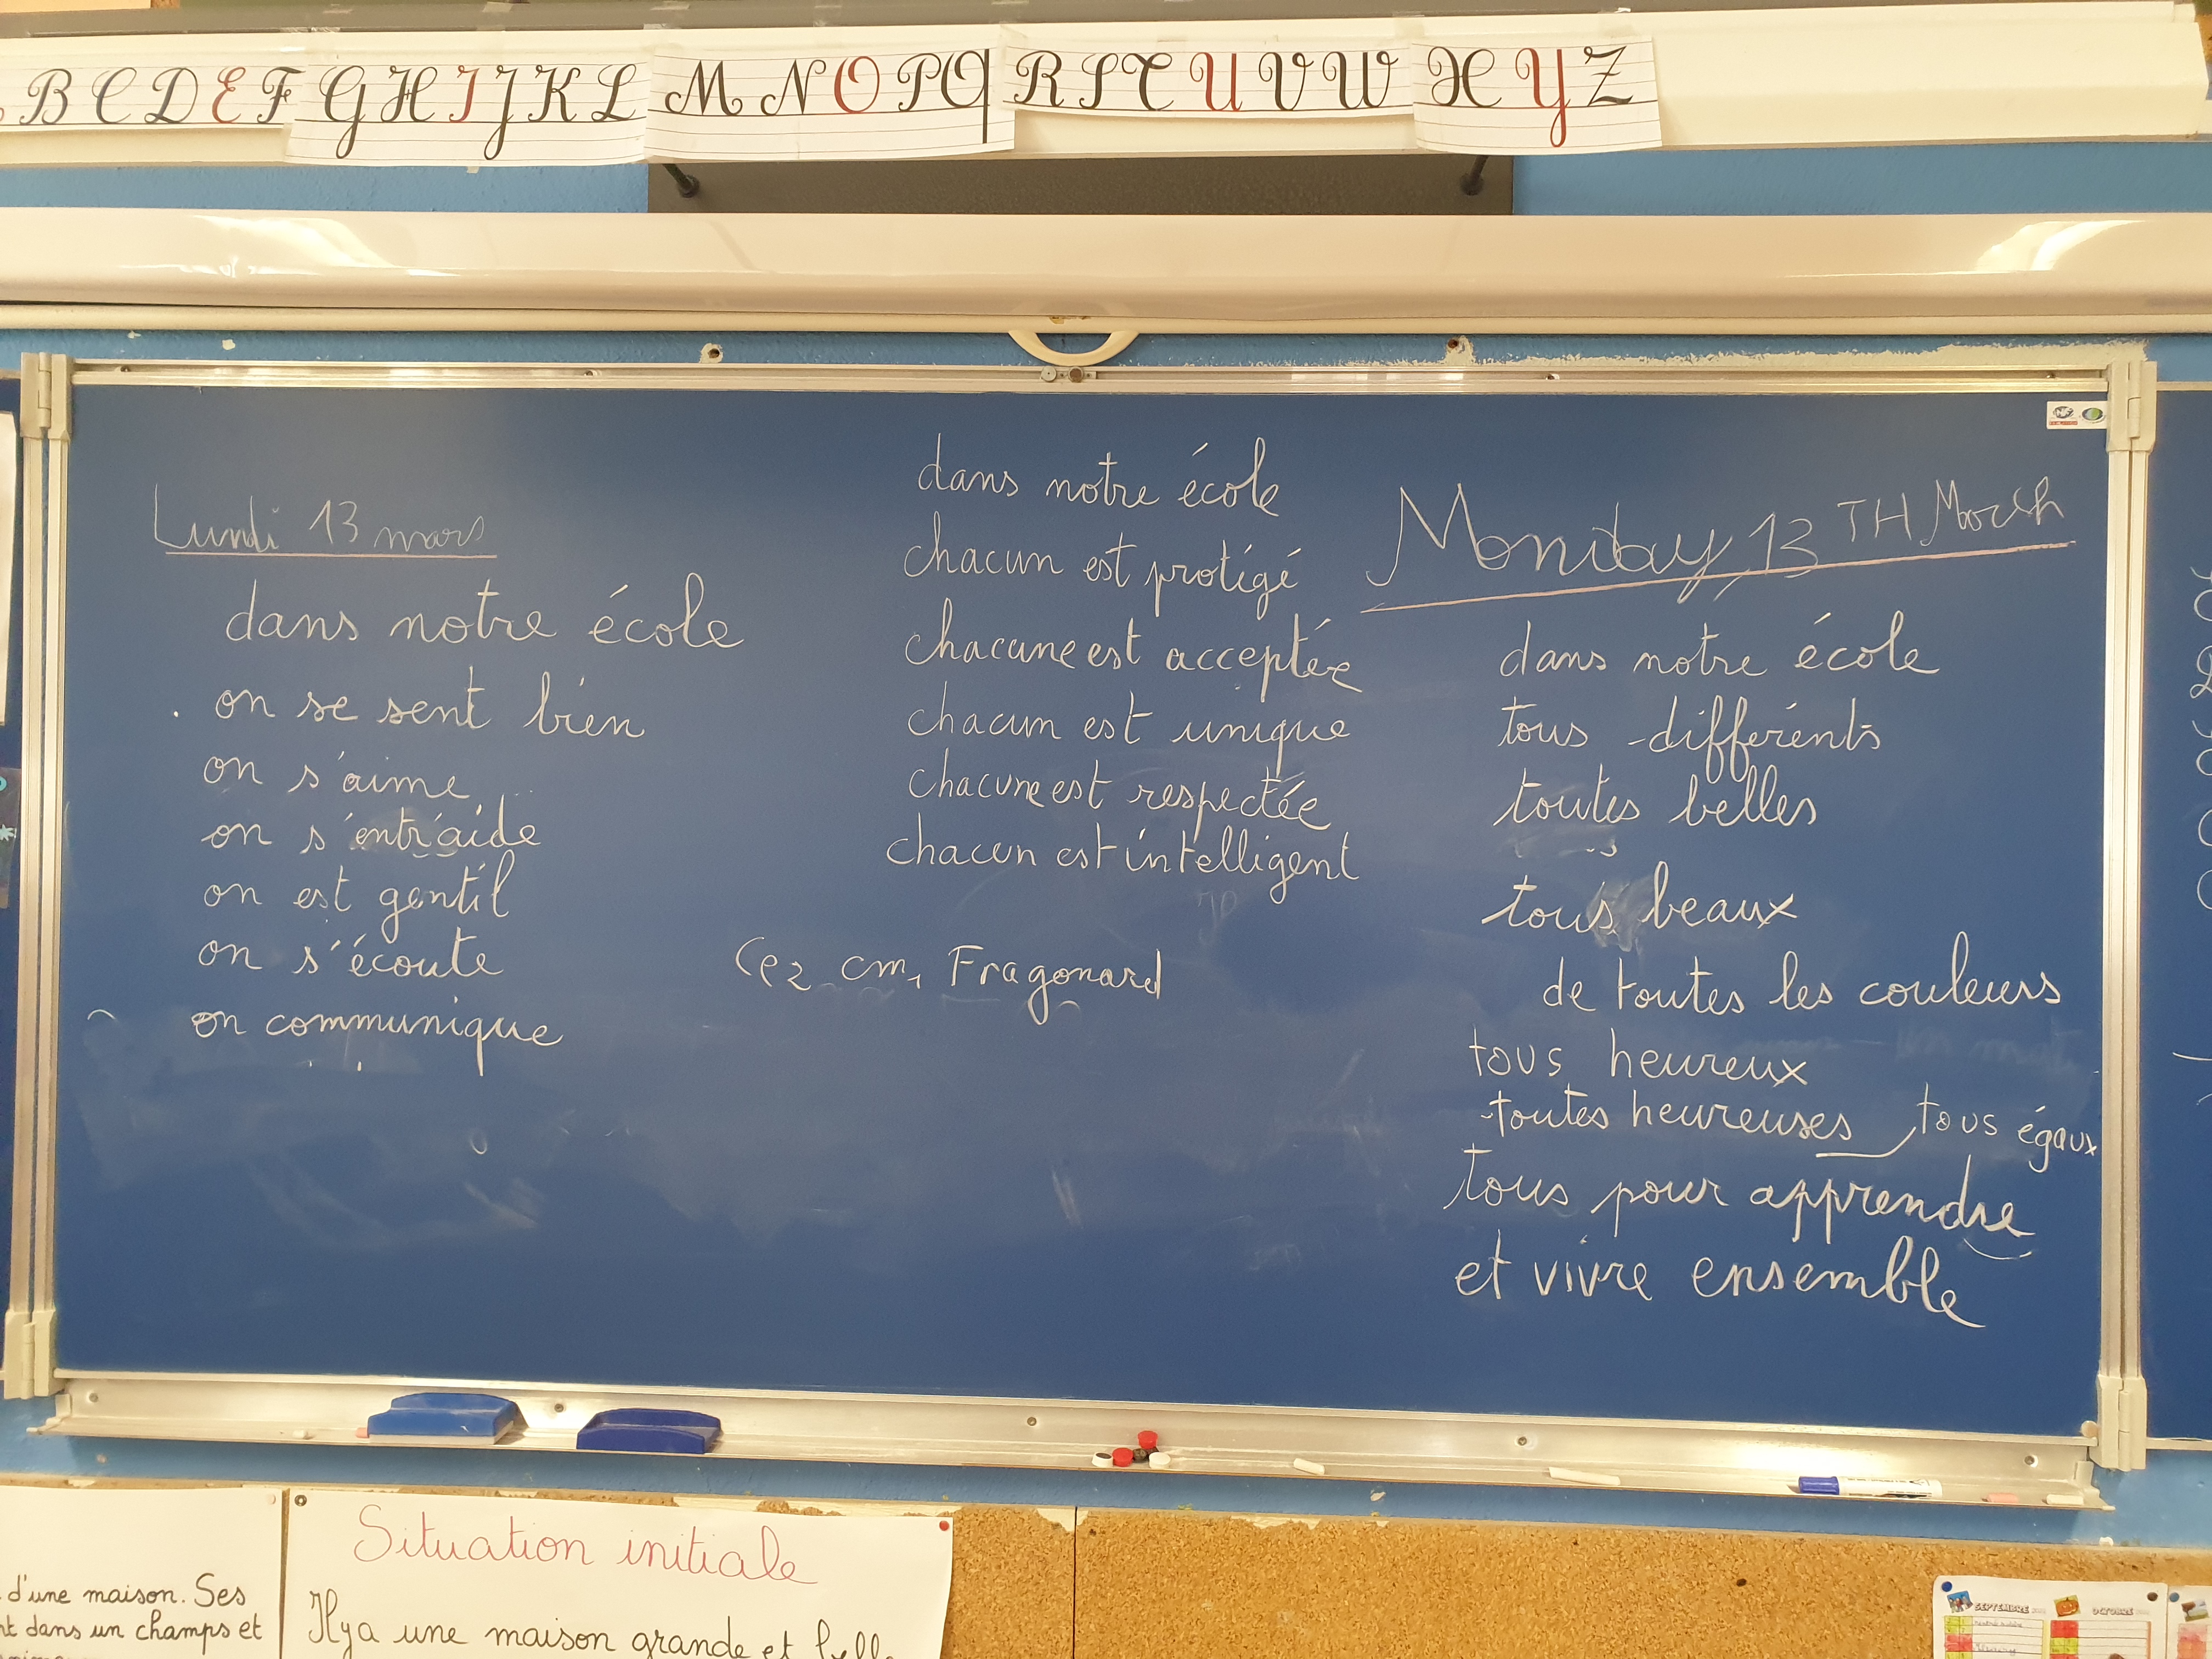 B C D E F G H I J K L M N O P Q R S T U V W X Y Z
Lundi 13 mars
dans notre école
on se sent bien
on s'aime
on s'entr'aide
on est gentil
on s'écoute
on communique
dans notre école
chacun est protigé
chacune est acceptée
chacun est unique
chacune est respectée
chacun est intelligent
Ce2 cm1 Fragonard
Monday, 13 TH March
dans notre école
tous différents
toutes belles
tous beaux
de toutes les couleurs
tous heureux
toutes heureuses tous égaux
tous pour apprendre
et vivre ensemble
d'une maison. Ses
dans un champs et
Situation initiale
Il y a une maison grande et
SEPTEMBRE
OCTOBRE